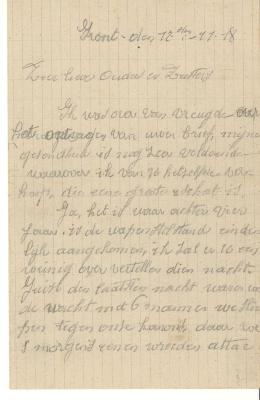 Front - den 17 den - 11 - 18
Zeer lieve Ouders en Zusters
Ik was over van vreugde
het ontvangen van uwen brief, mijne
gezondheid is nog zeer voldoende
waarover ik van U hetzelfde ver
hoop, die eene groote schat is.
Ja, het is waar achter vier
jaar is de wapenstilstand einde
lijk aangekomen, ik zal U es een
weinig over vertellen dien nacht
Juist den laatsten nacht waren
de wacht met 6 mannen
tegen onze daar we
's morgens eenen wreeden attac